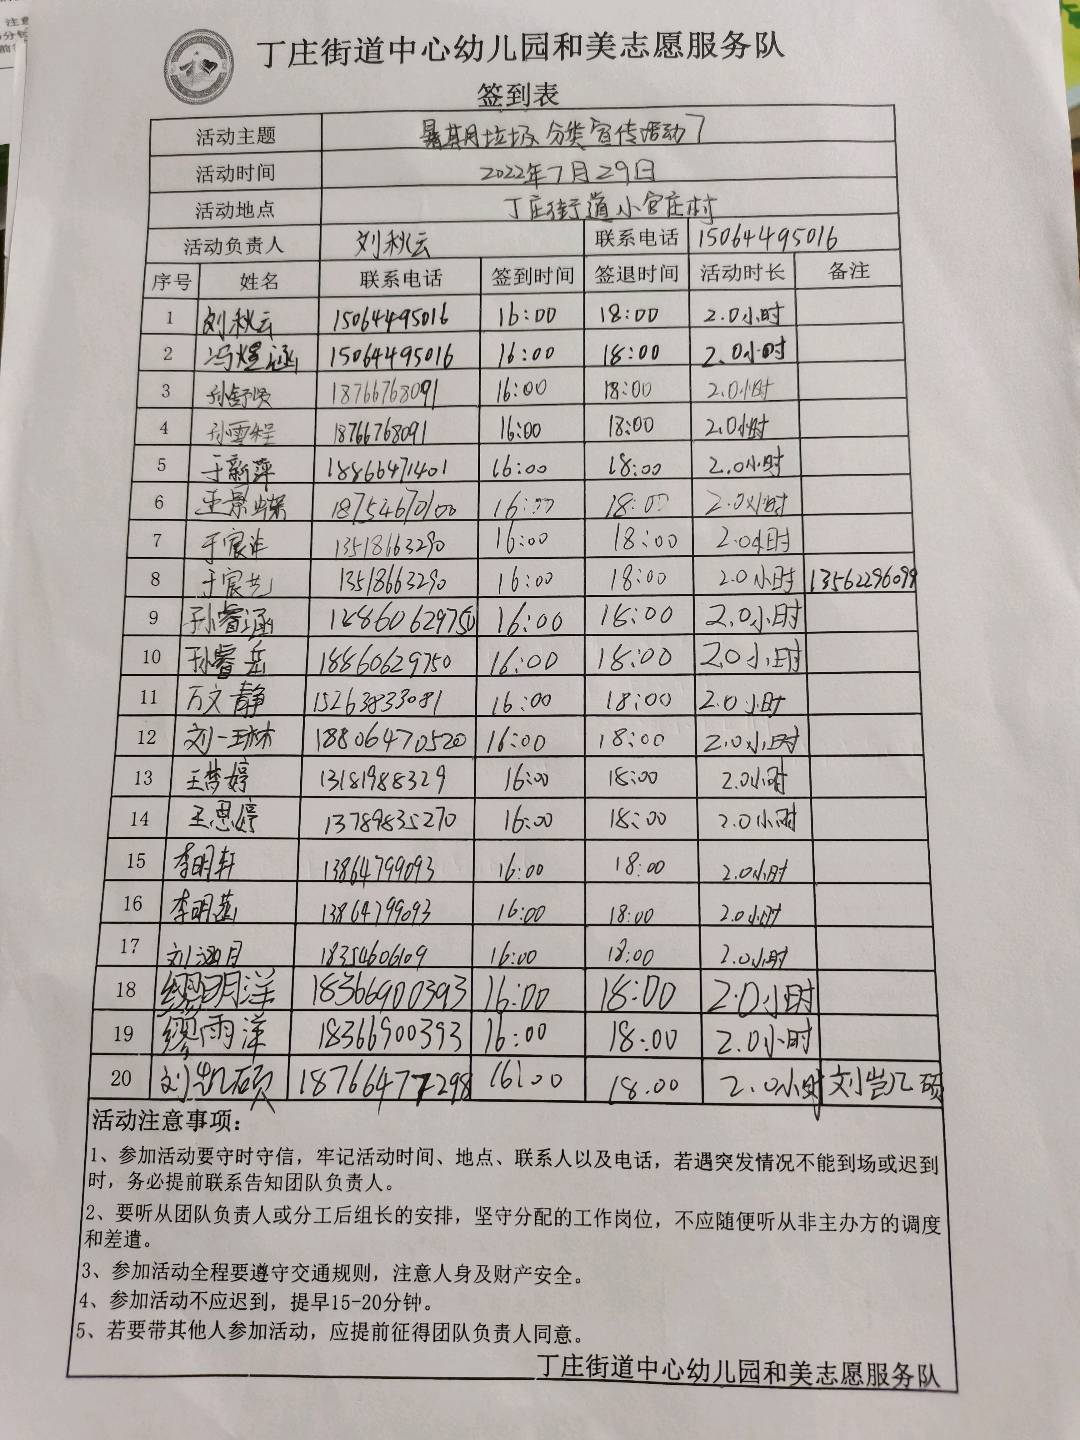 丁庄街道中心幼儿园和美志愿服务队
签到表
活动主题 暑期垃圾分类宣传活动7
活动时间 2022年7月29日
活动地点 丁庄街道小官庄村
活动负责人 刘秋云 联系电话 15064495016
序号 姓名 联系电话 签到时间 签退时间 活动时长 备注
1 刘秋云 15064495016 16:00 18:00 2.0小时
2 冯煜涵 15064495016 16:00 18:00 2.0小时
3 孙舒贤 18766768091 16:00 18:00 2.0小时
4 孙雪程 18766768091 16:00 18:00 2.0小时
5 于新萍 18866471401 16:00 18:00 2.0小时
6 王景 18754670100 16:00 18:00 2.0小时
7 于宸 13518663290 16:00 18:00 2.0小时
8 于宸艺 13518663290 16:00 18:00 2.0小时 13562296099
9 孙睿涵 18860629750 16:00 18:00 2.0小时
10 孙睿岳 18860629750 16:00 18:00 2.0小时
11 万文静 15263833081 16:00 18:00 2.0小时
12 刘一琳 18806470520 16:00 18:00 2.0小时
13 王梦婷 13181988329 16:00 18:00 2.0小时
14 王思婷 13789835270 16:00 18:00 2.0小时
15 李明轩 13864799093 16:00 18:00 2.0小时
16 李明 13864799093 16:00 18:00 2.0小时
17 刘涵月 18354606109 16:00 18:00 2.0小时
18 缪明洋 18366900393 16:00 18:00 2.0小时
19 缪雨洋 18366900393 16:00 18:00 2.0小时
20 刘凯硕 18766477298 16:00 18.00 2.0小时 刘凯硕
活动注意事项：
1、参加活动要守时守信，牢记活动时间、地点、联系人以及电话，若遇突发情况不能到场或迟到
时，务必提前联系告知团队负责人。
2、要听从团队负责人或分工后组长的安排，坚守分配的工作岗位，不应随便听从非主办方的调度
和差遣。
3、参加活动全程要遵守交通规则，注意人身及财产安全。
4、参加活动不应迟到，提早15-20分钟。
5、若要带其他人参加活动，应提前征得团队负责人同意。
丁庄街道中心幼儿园和美志愿服务队